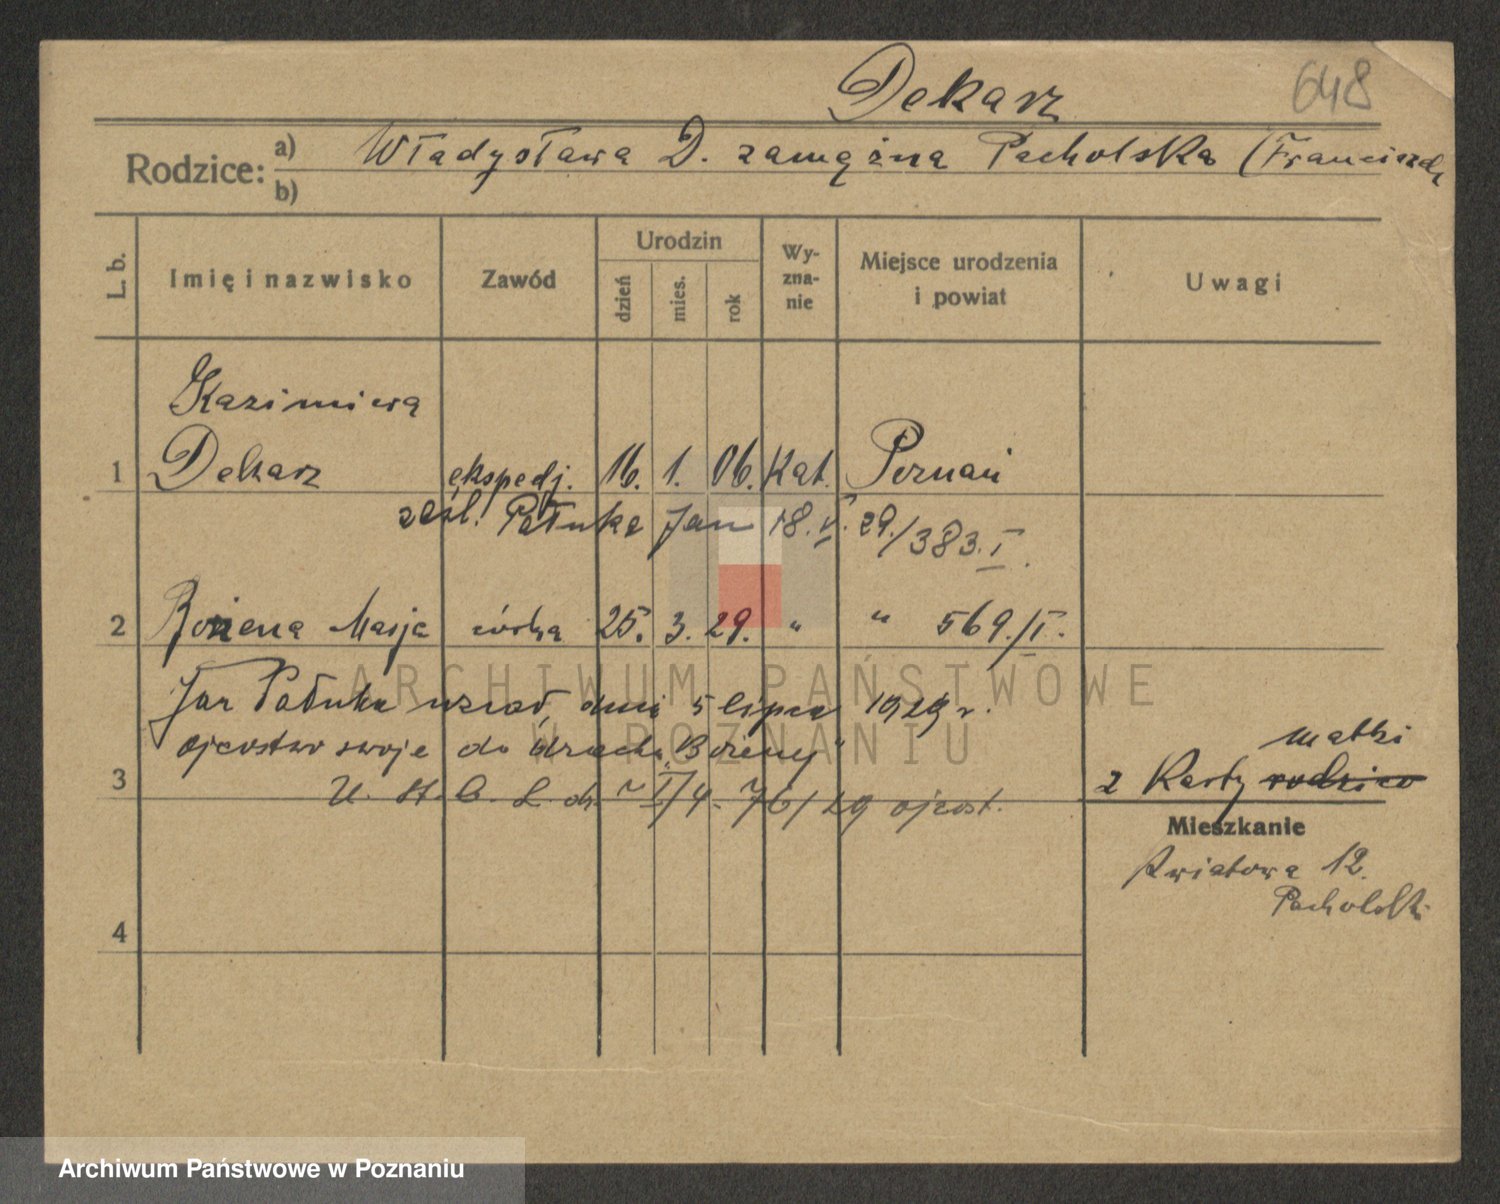 Dekarz
648
Rodzice:
a) Władysława D. zamężna Pacholska (Franciszek
b)
L. b.
Imię i nazwisko
Zawód
Urodzin
dzień
mies.
rok
Wy-
zna-
nie
Miejsce urodzenia
i powiat
Uwagi
Kazimiera
1 Dekarz ekspedj. 16. 1. 06. Kat. Poznań
zaśl. Pałuka Jan 18. V. 29./383. I.
2 Bożena Marja córka 25. 3. 29. " " 569./I.
Jan Pałuka uznał dnia 5 lipca 1929 r.
ojcostwo swoje do dziecka "Bożeny"
3
U. St. C. L. dz. I/4 - 76/29 ojcost.
matki
z Karty rodzice
Mieszkanie
Kwiatowa 12.
Pacholski
4
ARCHIWUM PAŃSTWOWE
W POZNANIU
Archiwum Państwowe w Poznaniu